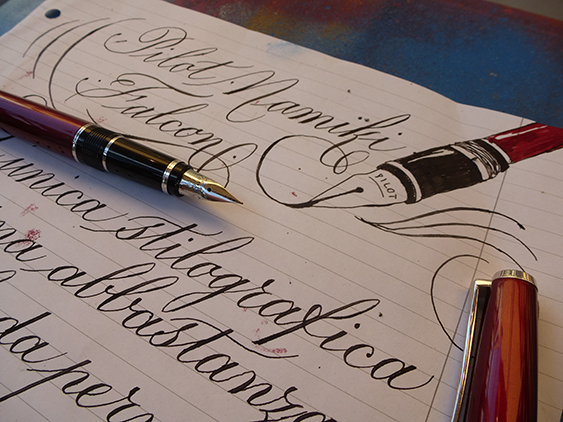 Pilot Namiki
Falcon
PILOT
unica stilografica
abbastanza
da per